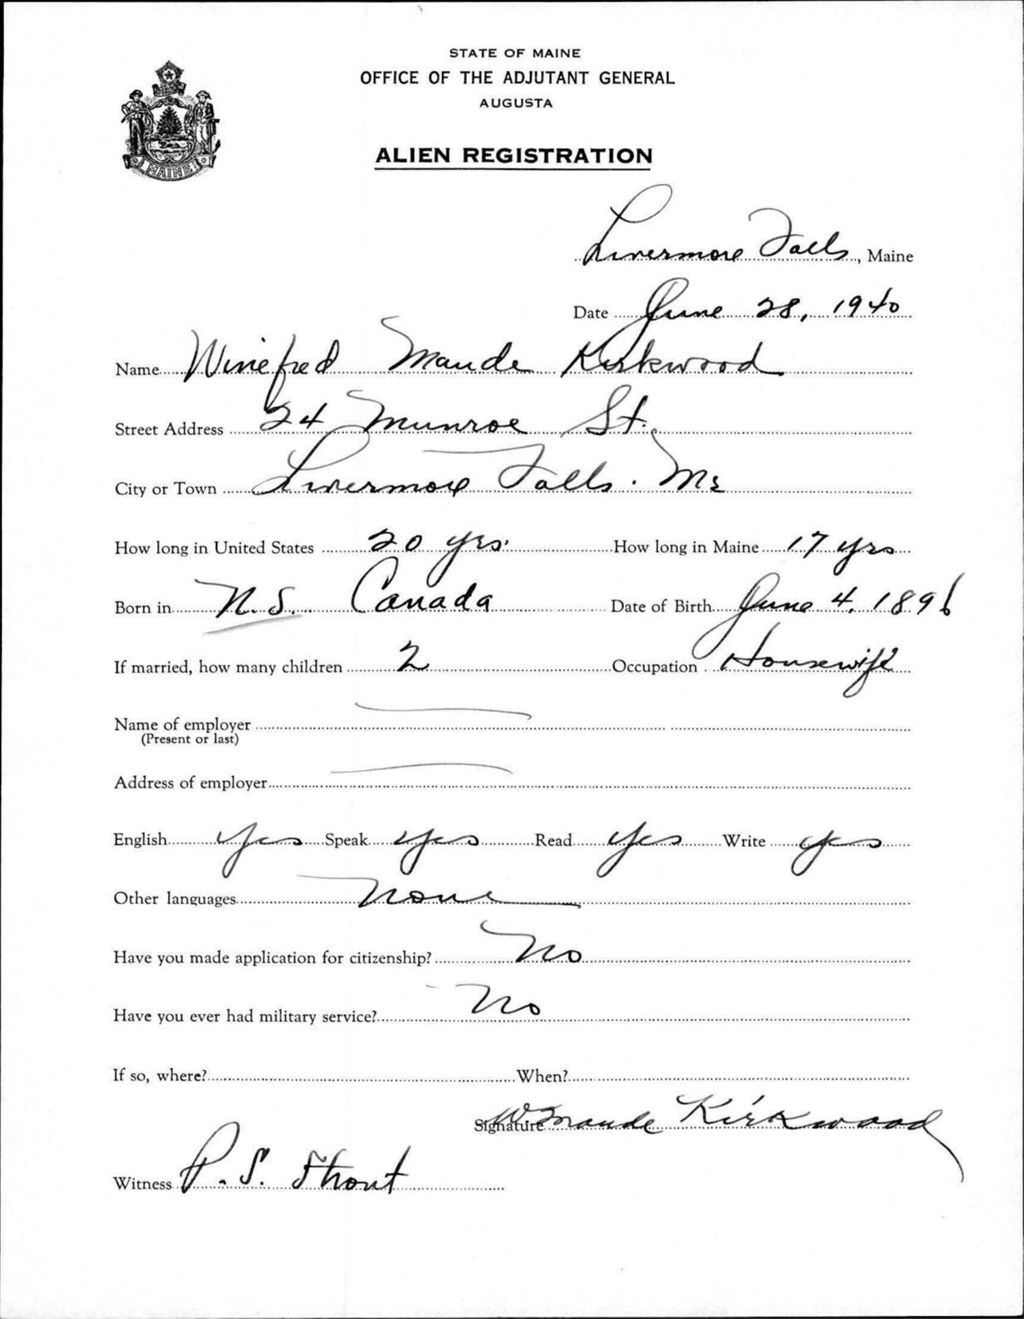 STATE OF MAINE
OFFICE OF THE ADJUTANT GENERAL
AUGUSTA
ALIEN REGISTRATION
MAINE
Livermore Falls, Maine
Date June 28, 1940
Name Winefred Maude Kirkwood
Street Address 24 Munroe St.
City or Town Livermore Falls. Me
How long in United States 20 yrs. How long in Maine 17 yrs
Born in N.S. Canada Date of Birth June 4, 1896
If married, how many children 2 Occupation Housewife
Name of employer
(Present or last)
Address of employer
English Yes Speak yes Read Yes Write yes
Other languages None
Have you made application for citizenship? No
Have you ever had military service? No
If so, where? When?
Signature W Maude Kirkwood
Witness P. S.